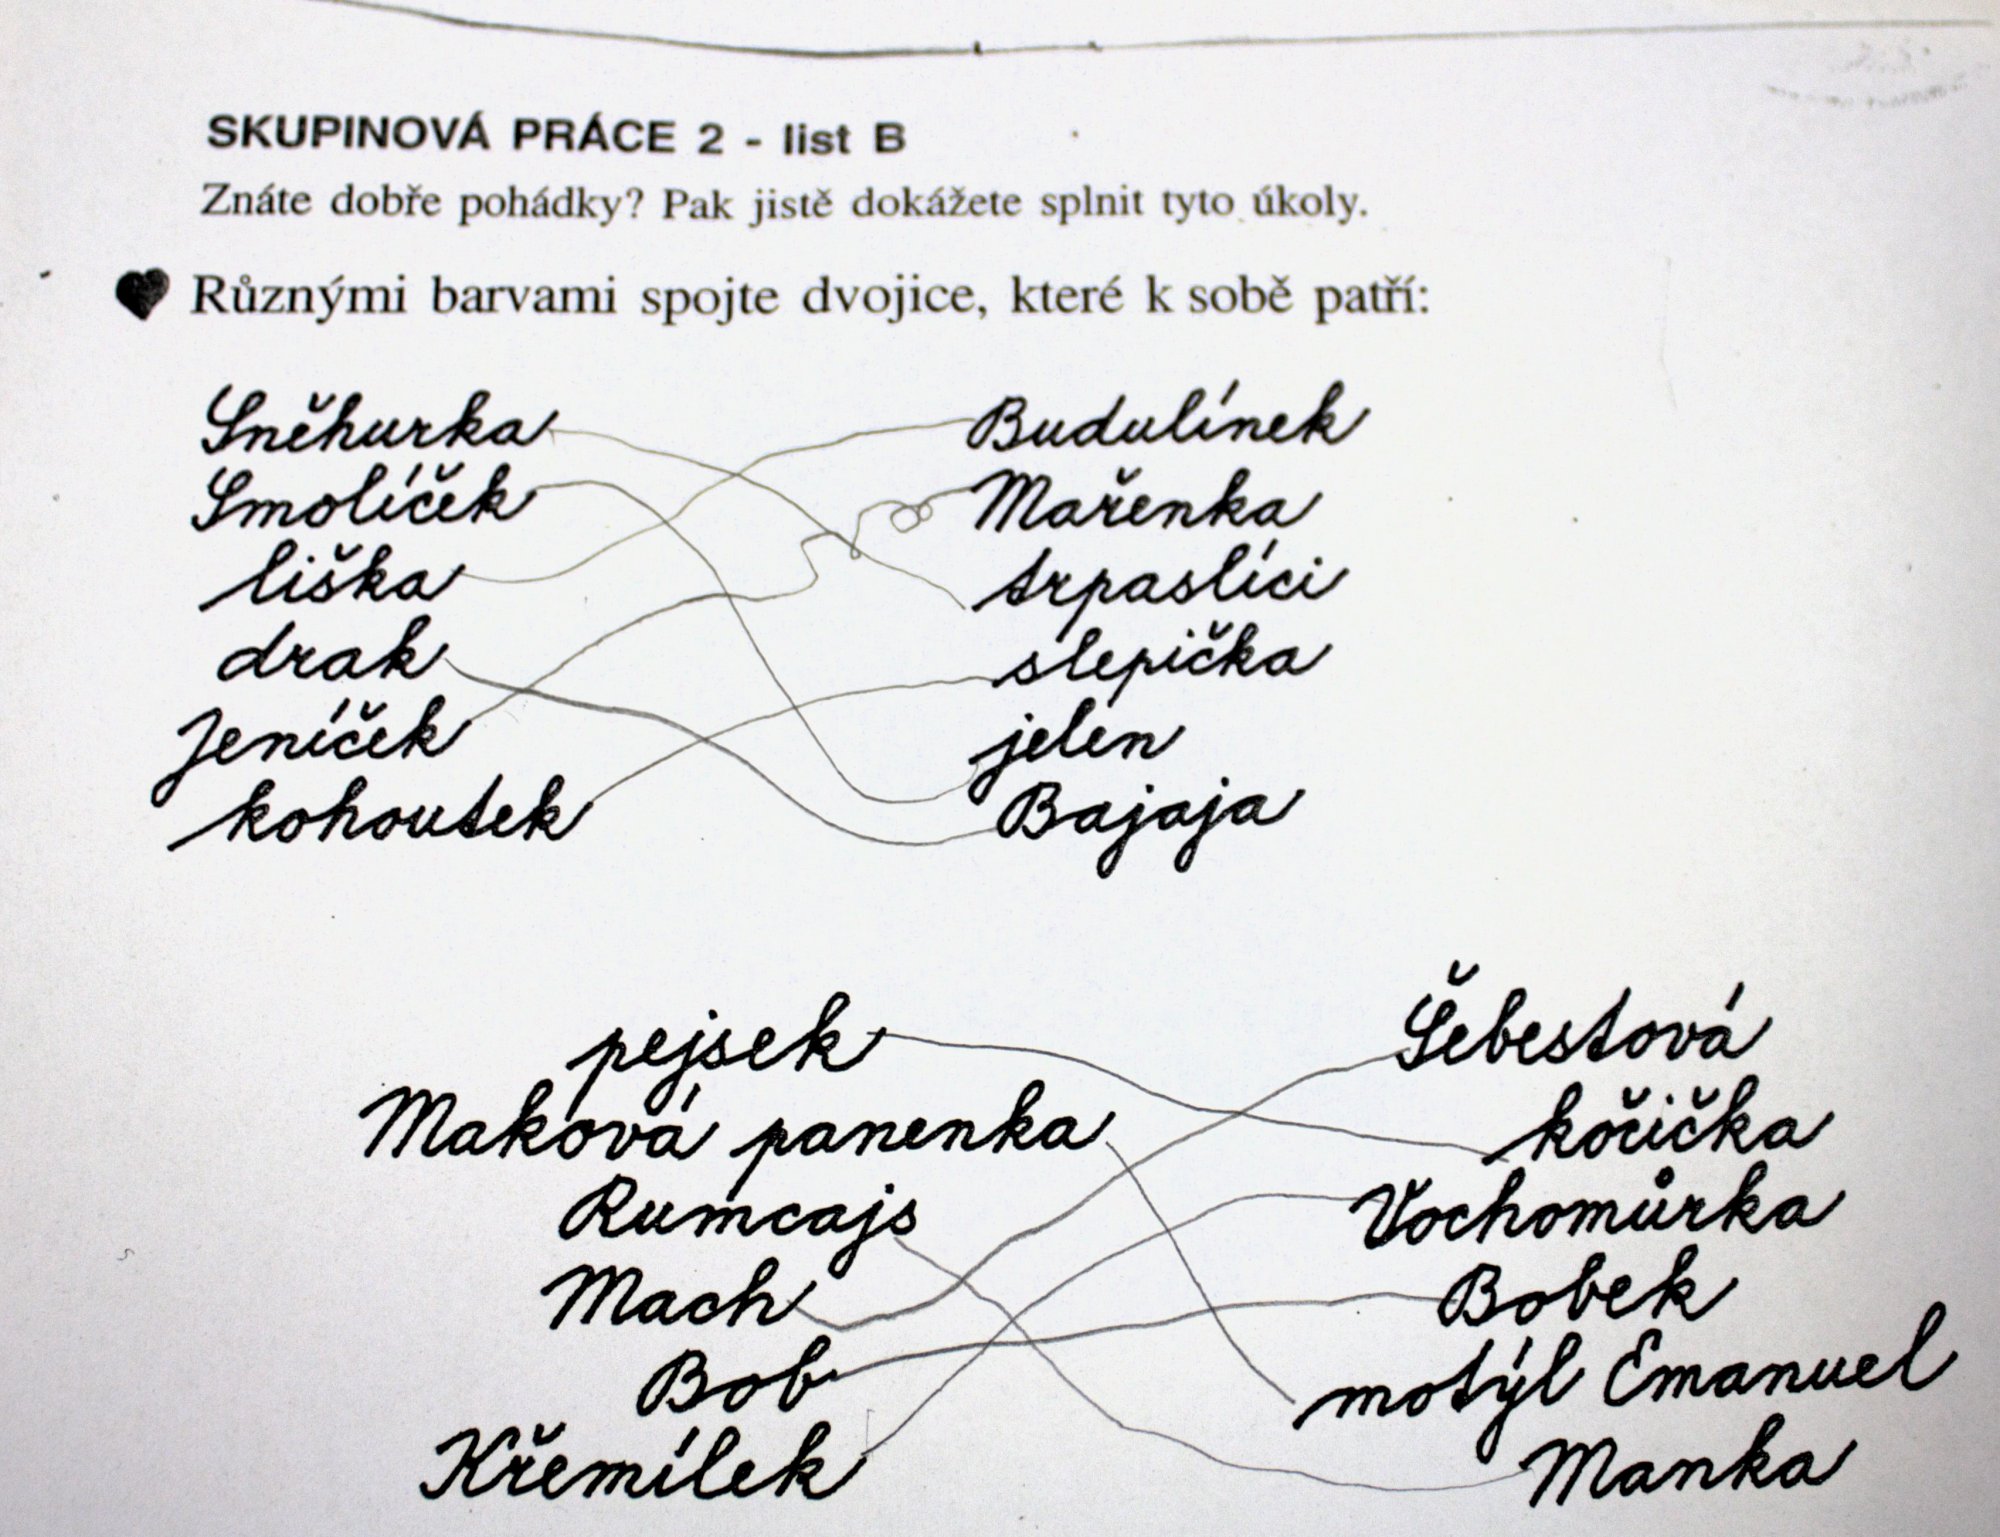 SKUPINOVÁ PRÁCE 2 - list B
Znáte dobře pohádky? Pak jistě dokážete splnit tyto úkoly.
Různými barvami spojte dvojice, které k sobě patří:
Sněhurka Budulínek
Smolíček Mařenka
liška trpaslíci
drak slepička
Jeníček jelen
kohoutek Bajaja
pejsek Šebestová
Maková panenka kočička
Rumcajs Vochomůrka
Mach Bobek
Bob motýl Emanuel
Křemílek Manka